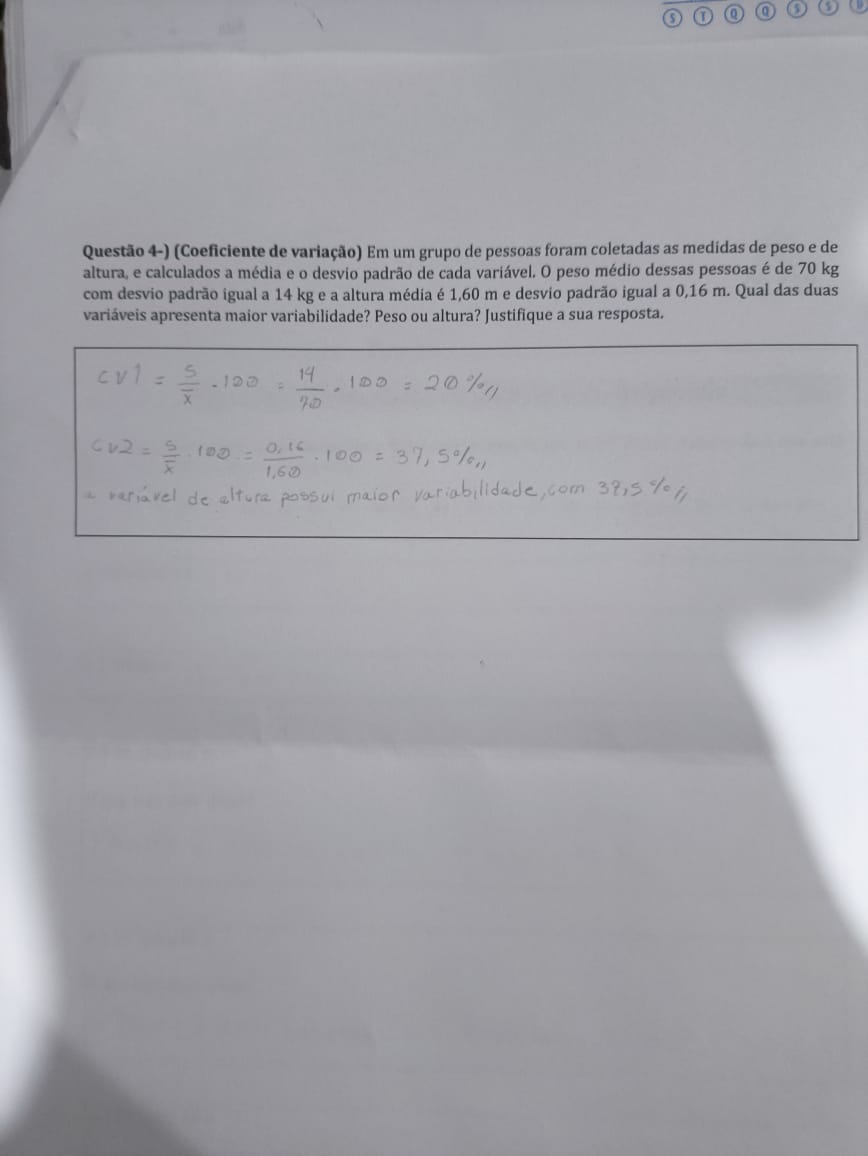 S T Q Q S S D
Questão 4-) (Coeficiente de variação) Em um grupo de pessoas foram coletadas as medidas de peso e de
altura, e calculados a média e o desvio padrão de cada variável. O peso médio dessas pessoas é de 70 kg
com desvio padrão igual a 14 kg e a altura média é 1,60 m e desvio padrão igual a 0,16 m. Qual das duas
variáveis apresenta maior variabilidade? Peso ou altura? Justifique a sua resposta.
CV1 = s/x̄ . 100 = 14/70 . 100 = 20%//
CV2 = s/x̄ . 100 = 0,16/1,60 . 100 = 37,5%//
a variável de altura possui maior variabilidade, com 37,5%//